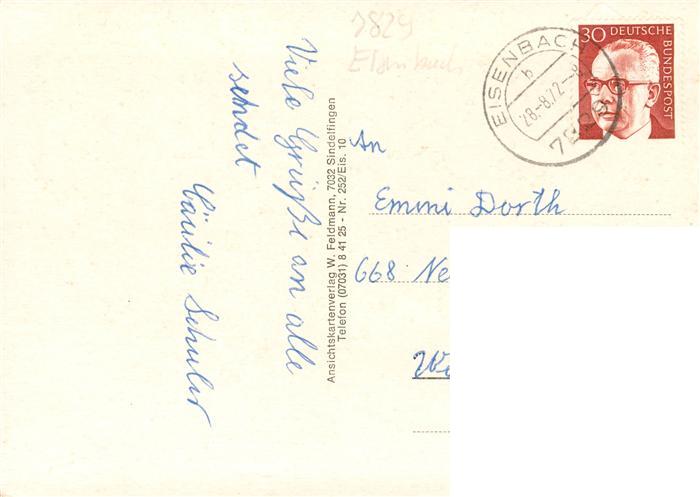 7829
Eisenbach
Viele Grüße an alle
sendet
Cäcilie Schuler
Ansichtskartenverlag W. Feldmann, 7032 Sindelfingen
Telefon (07031) 8 41 25 - Nr. 252/Eis. 10
EISENBACH
b
28.-8.72.-8
7829
30 DEUTSCHE
BUNDESPOST
An
Emmi Dorth
668 Ne